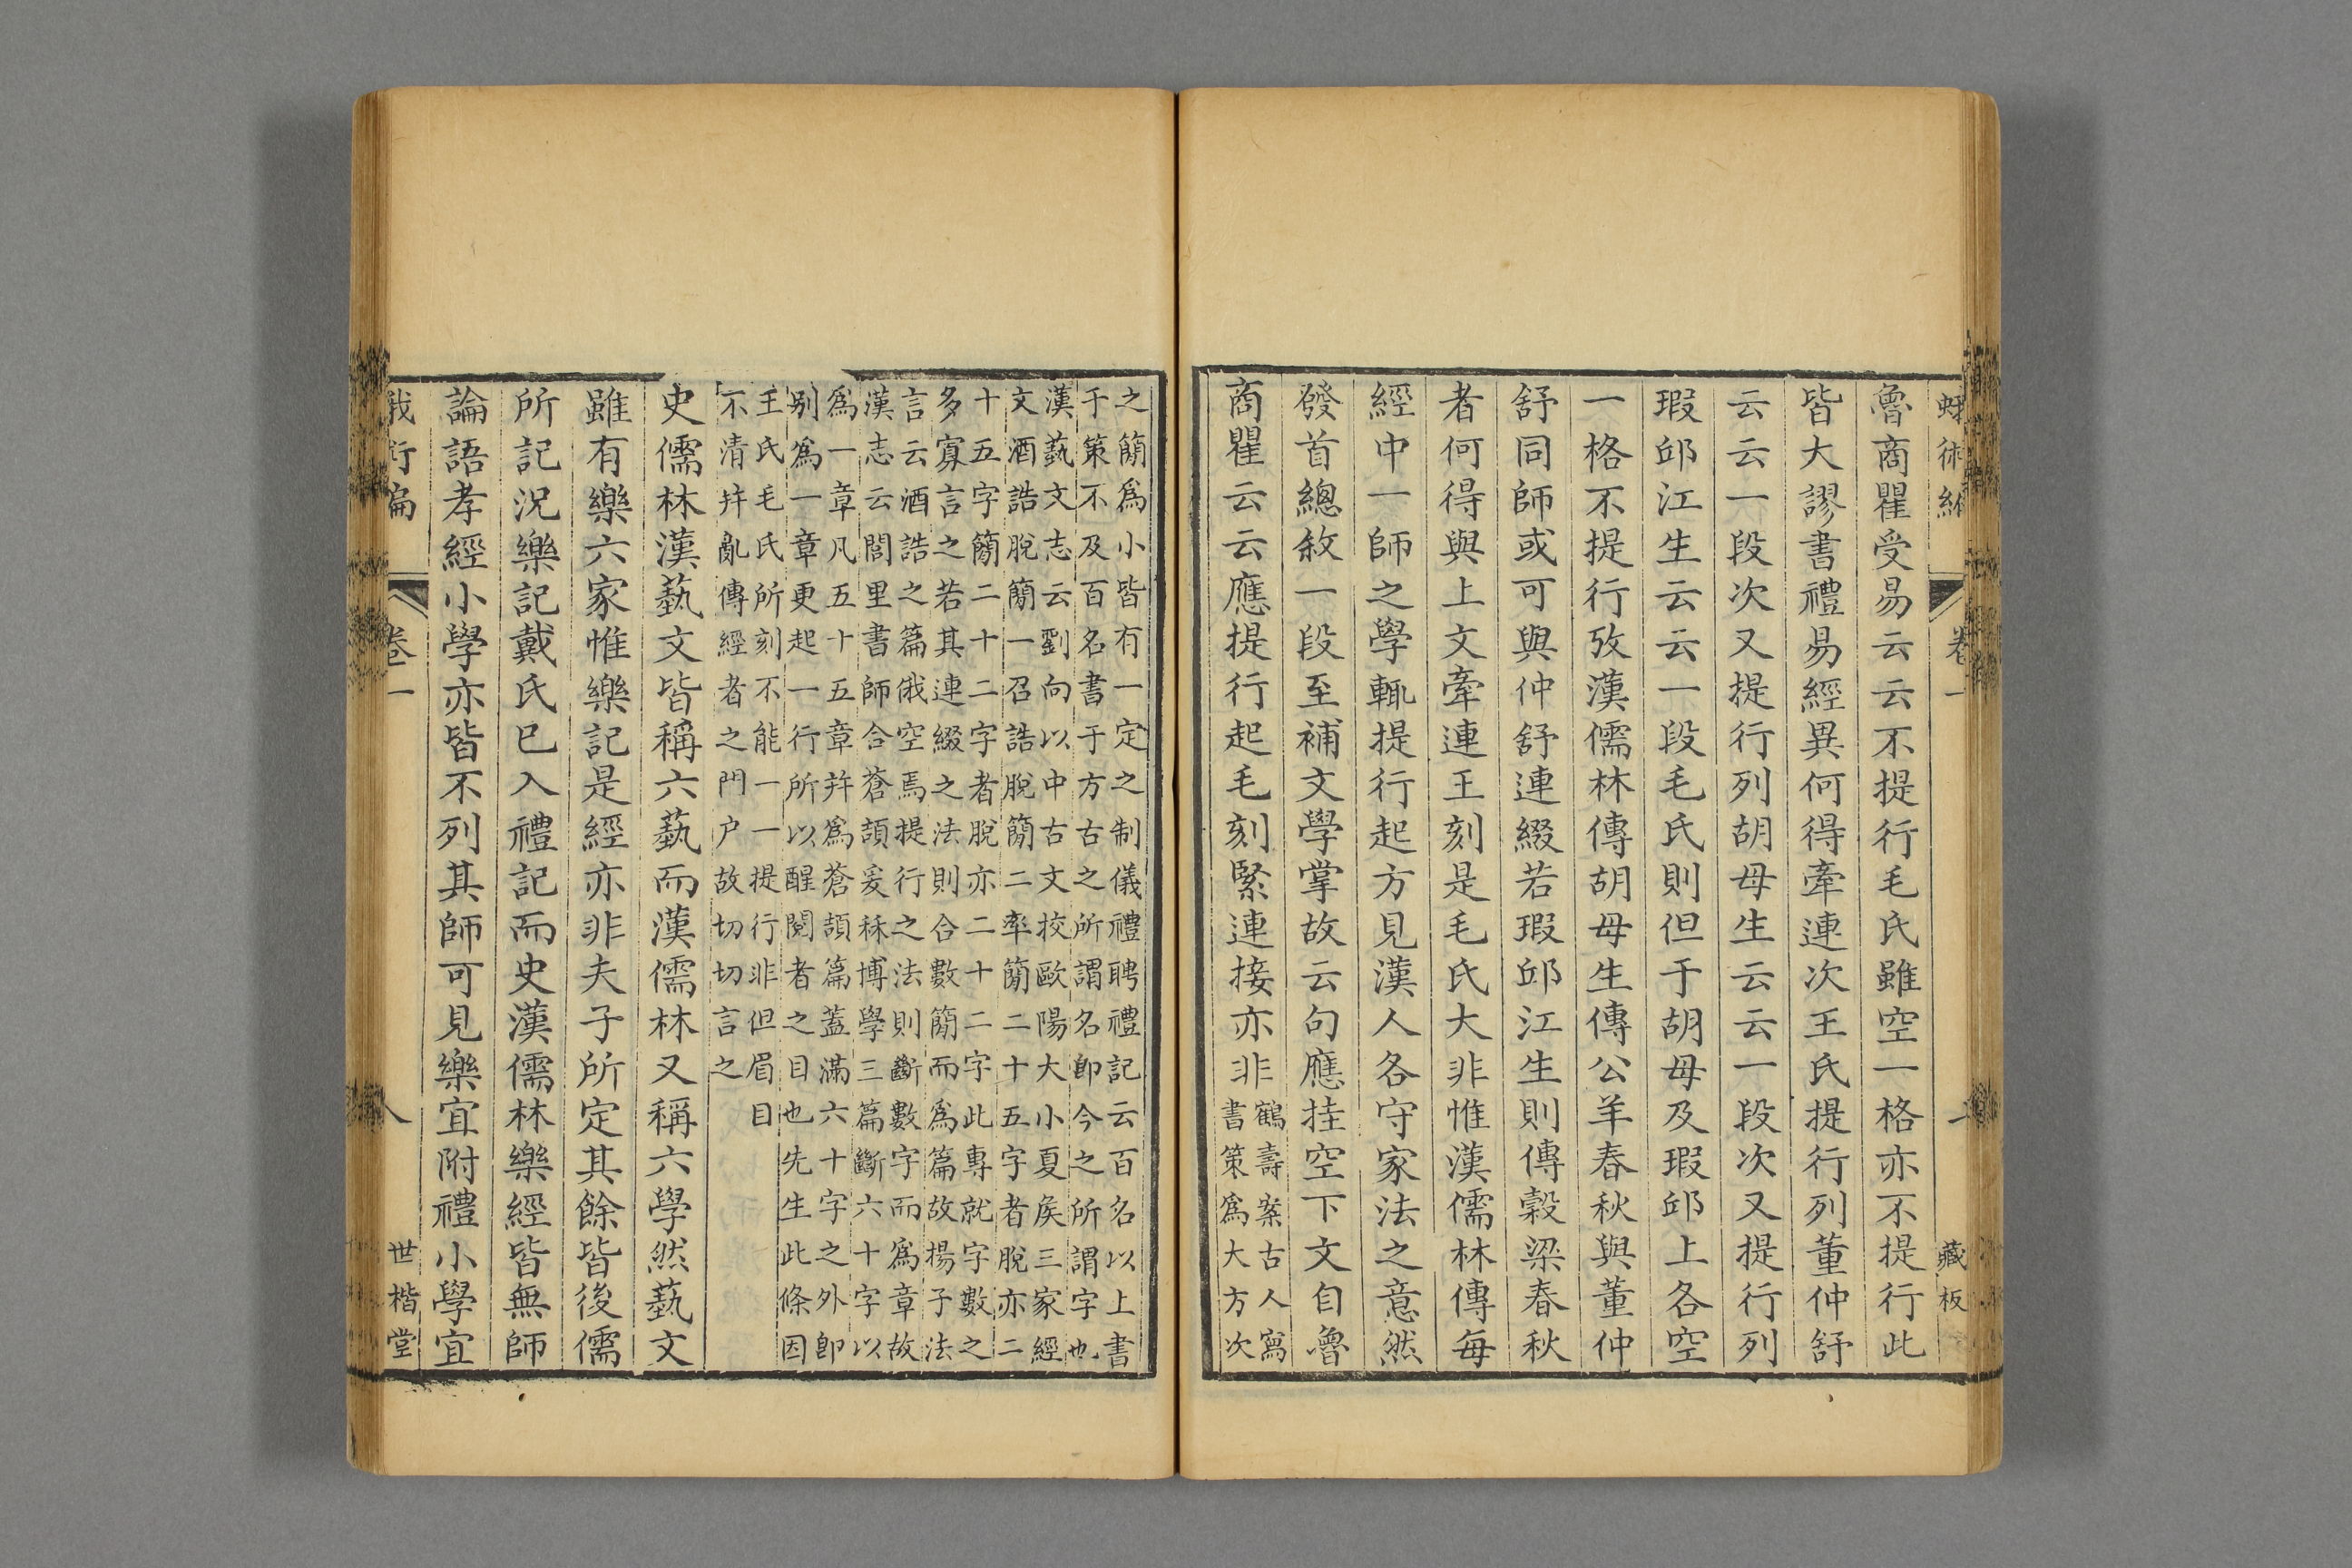 蛾術編
卷一
藏板
魯商瞿受易云云不提行毛氏雖空一格亦不提行此
皆大謬書禮易經異何得牽連次王氏提行列董仲舒
云云一段次又提行列胡母生云云一段次又提行列
瑕邱江生云云一段毛氏則但于胡母及瑕邱上各空
一格不提行攷漢儒林傳胡母生傳公羊春秋與董仲
舒同師或可與仲舒連綴若瑕邱江生則傳穀梁春秋
者何得與上文牽連王刻是毛氏大非惟漢儒林傳每
經中一師之學輒提行起方見漢人各守家法之意然
發首總敘一段至補文學掌故云句應挂空下文自魯
商瞿云云應提行起毛刻緊連接亦非
鶴壽案古人寫
書策爲大方次
之簡爲小皆有一定之制儀禮聘禮記云百名以上書
于策不及百名書于方古之所謂名卽今之所謂字也
漢藝文志云劉向以中古文挍歐陽大小夏矦三家經
文酒誥脫簡一召誥脫簡二率簡二十五字者脫亦二
十五字簡二十二字者脫亦二十二字此專就字數之
多寡言之若其連綴之法則合數簡而爲篇故揚子法
言云酒誥之篇俄空焉提行之法則斷數字而爲章故
漢志云閭里書師合蒼頡爰秝博學三篇斷六十字以
爲一章凡五十五章幷爲蒼頡篇蓋滿六十字之外卽
别爲一章更起一行所以醒閱者之目也先生此條因
王氏毛氏所刻不能一一提行非但眉目
不清幷亂傳經者之門户故切切言之
史儒林漢藝文皆稱六藝而漢儒林又稱六學然藝文
雖有樂六家惟樂記是經亦非夫子所定其餘皆後儒
所記況樂記戴氏巳入禮記而史漢儒林樂經皆無師
論語孝經小學亦皆不列其師可見樂宜附禮小學宜
蛾術編
卷一
八
世楷堂